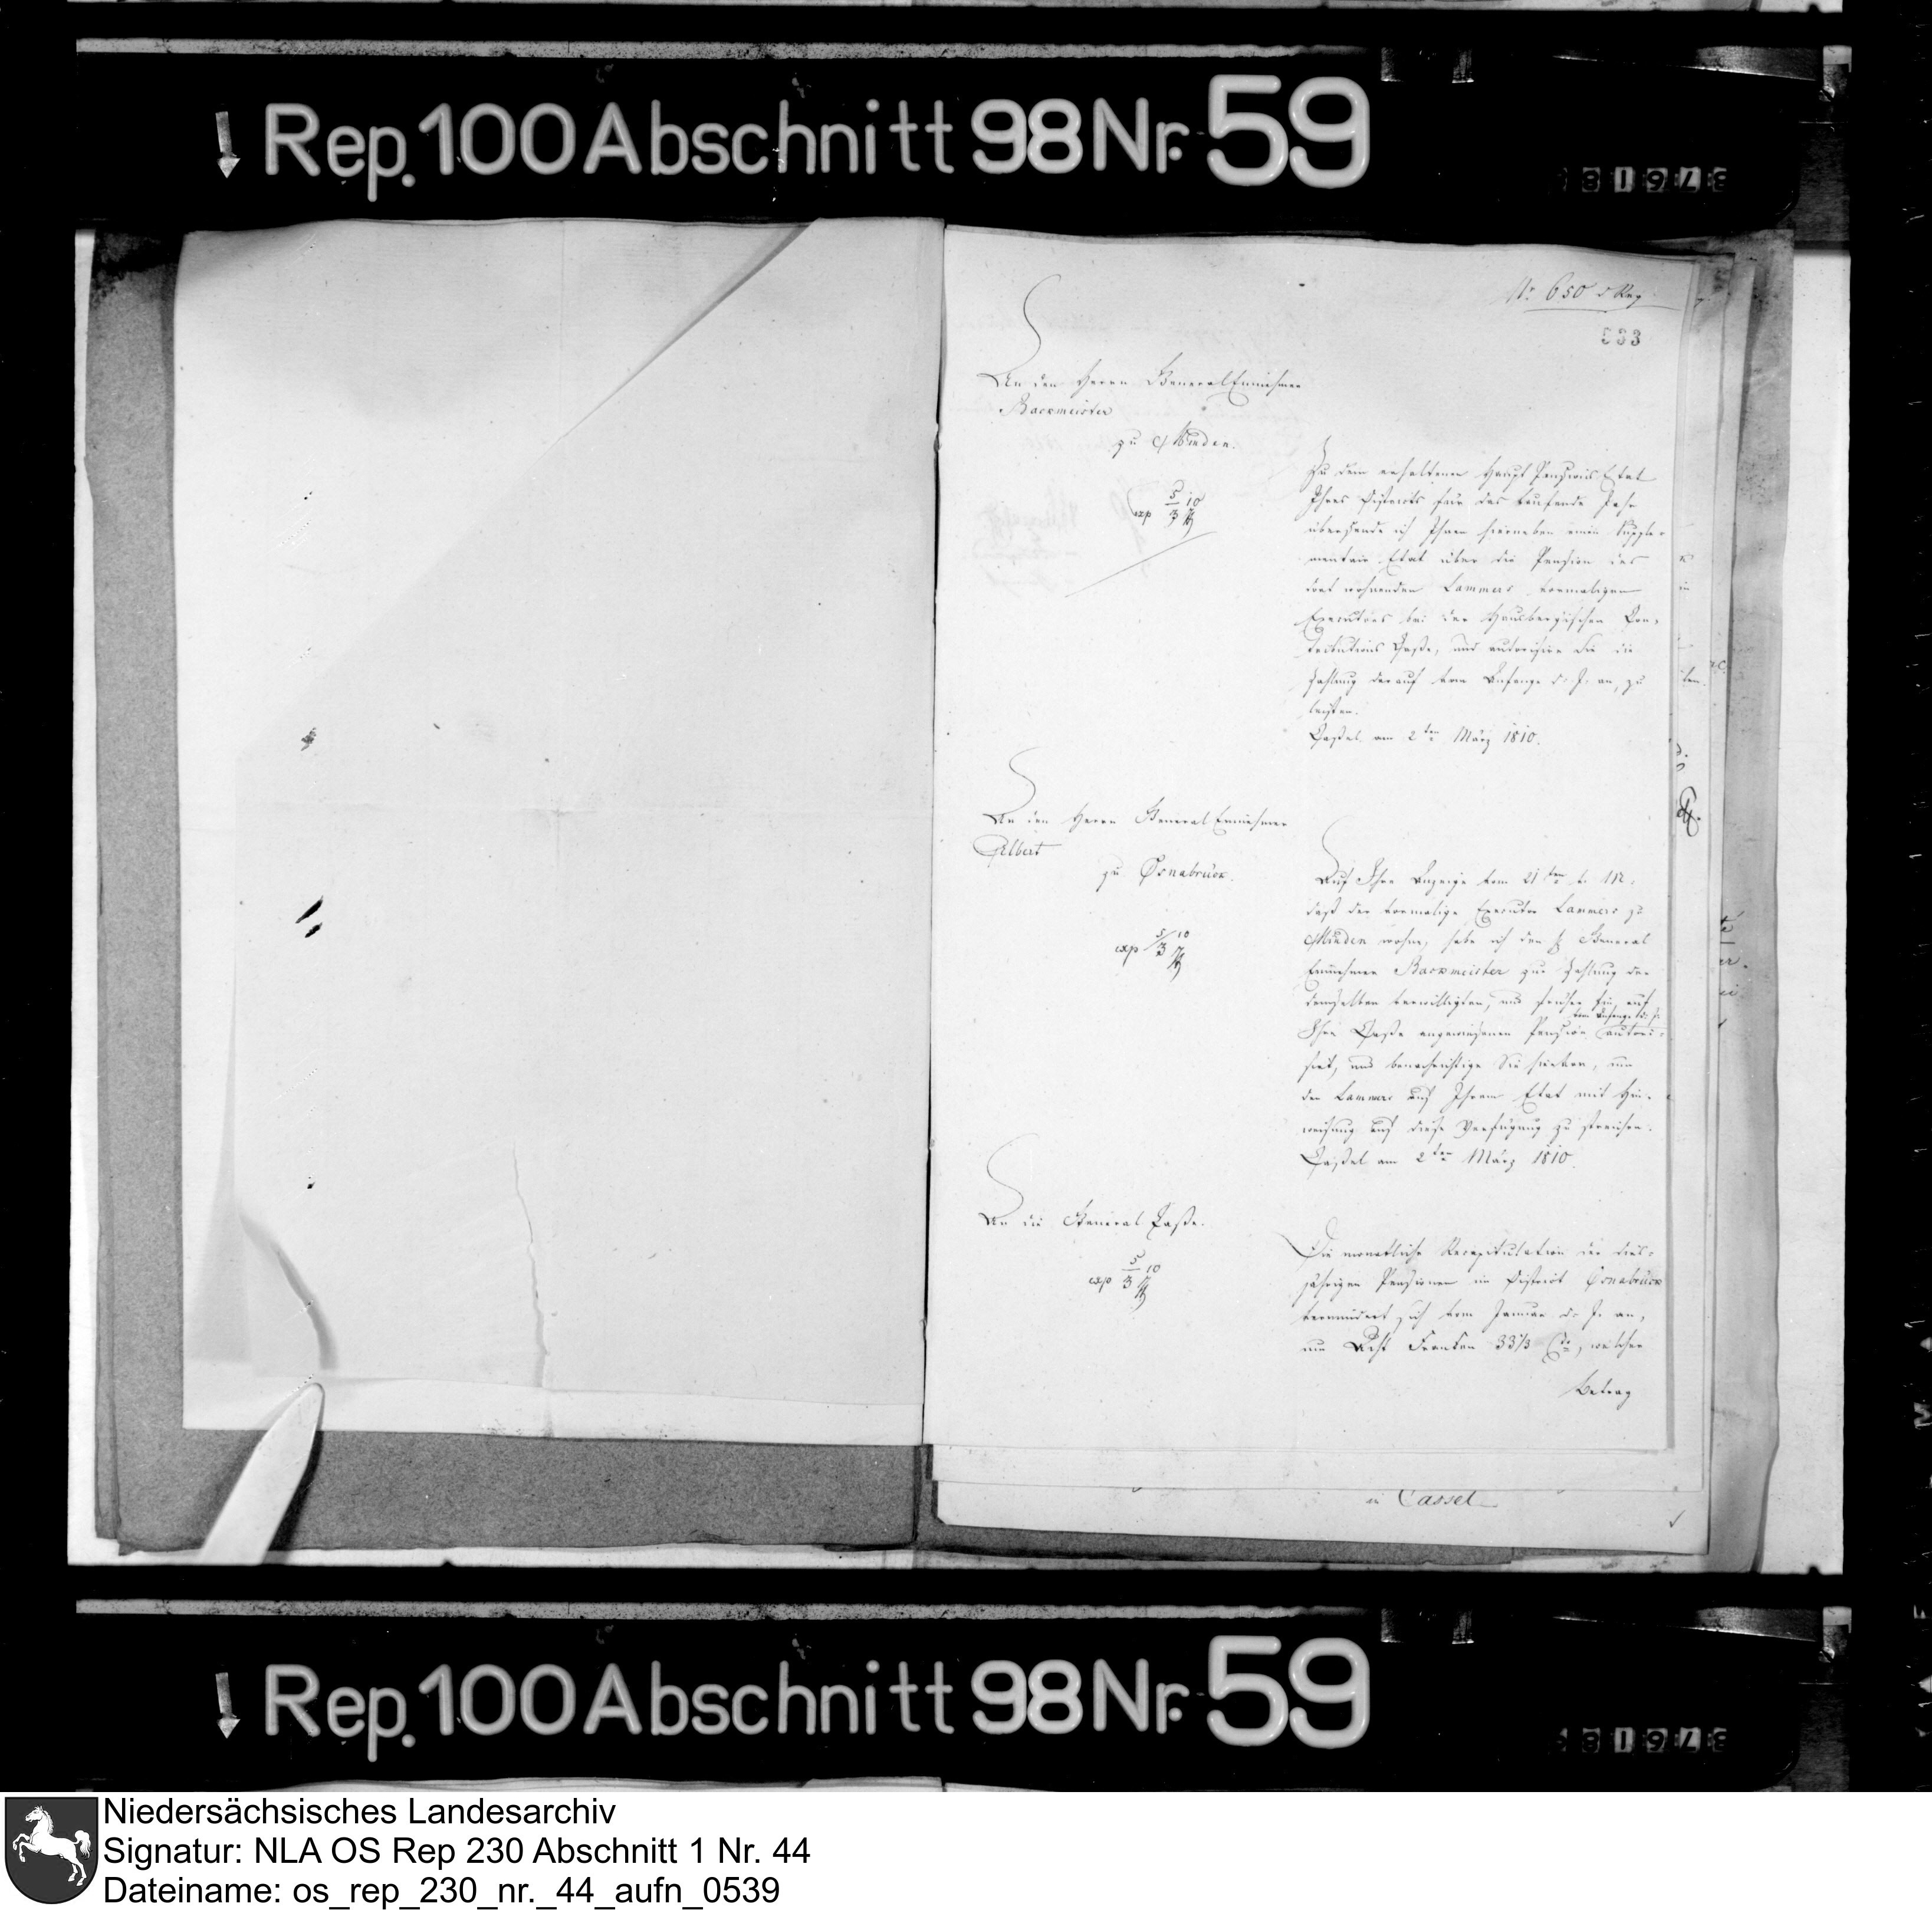 Rep. 100 Abschnitt 98 Nr. 59
No 650 d Reg
333
An den Herrn General Einnehmer
Backmeister
zu Minden.
exp 5/3 10
Zu dem erhaltenen Haupt Pensions Etat
Ihres Districts für das laufende Jahr
übersende ich Ihnen hierneben einen Supple-
mentair Etat über die Pension des
dort wohnenden Lammers vormaligen
Executors bei der Hausbergischen Con-
tributions Casse, und autorisire Sie die
Zahlung derauf vom Anfange d. J. an, zu
leisten.
Cassel am 2ten März 1810.
An den Herrn General Einnehmer
Albert
zu Osnabrück.
exp 5/3 10
Auf Ihre Anzeige vom 21ten v. M.
daß der vormalige Executor Lammers zu
Minden wohne, habe ich den H General
Einnehmer Backmeister zur Zahlung der
demselben bewilligten, und früher hin auf
vom Anfange d. J.
Ihre Casse angewiesenen Pension autori-
sirt, und benachrichtige Sie hievon, um
den Lammers auf Ihrem Etat mit Hin-
weisung auf diese Verfügung zu streichen.
Cassel am 2ten März 1810.
An die General Casse.
exp 5/3 10
Die monatliche Recapitulation der dies-
jährigen Pensionen im District Osnabrück
vermindert sich vom Januar d. J. an,
um Acht Franken 33 1/3 Ce, welcher
Betrag
in Cassel
Rep. 100 Abschnitt 98 Nr. 59
Niedersächsisches Landesarchiv
Signatur: NLA OS Rep 230 Abschnitt 1 Nr. 44
Dateiname: os_rep_230_nr._44_aufn_0539